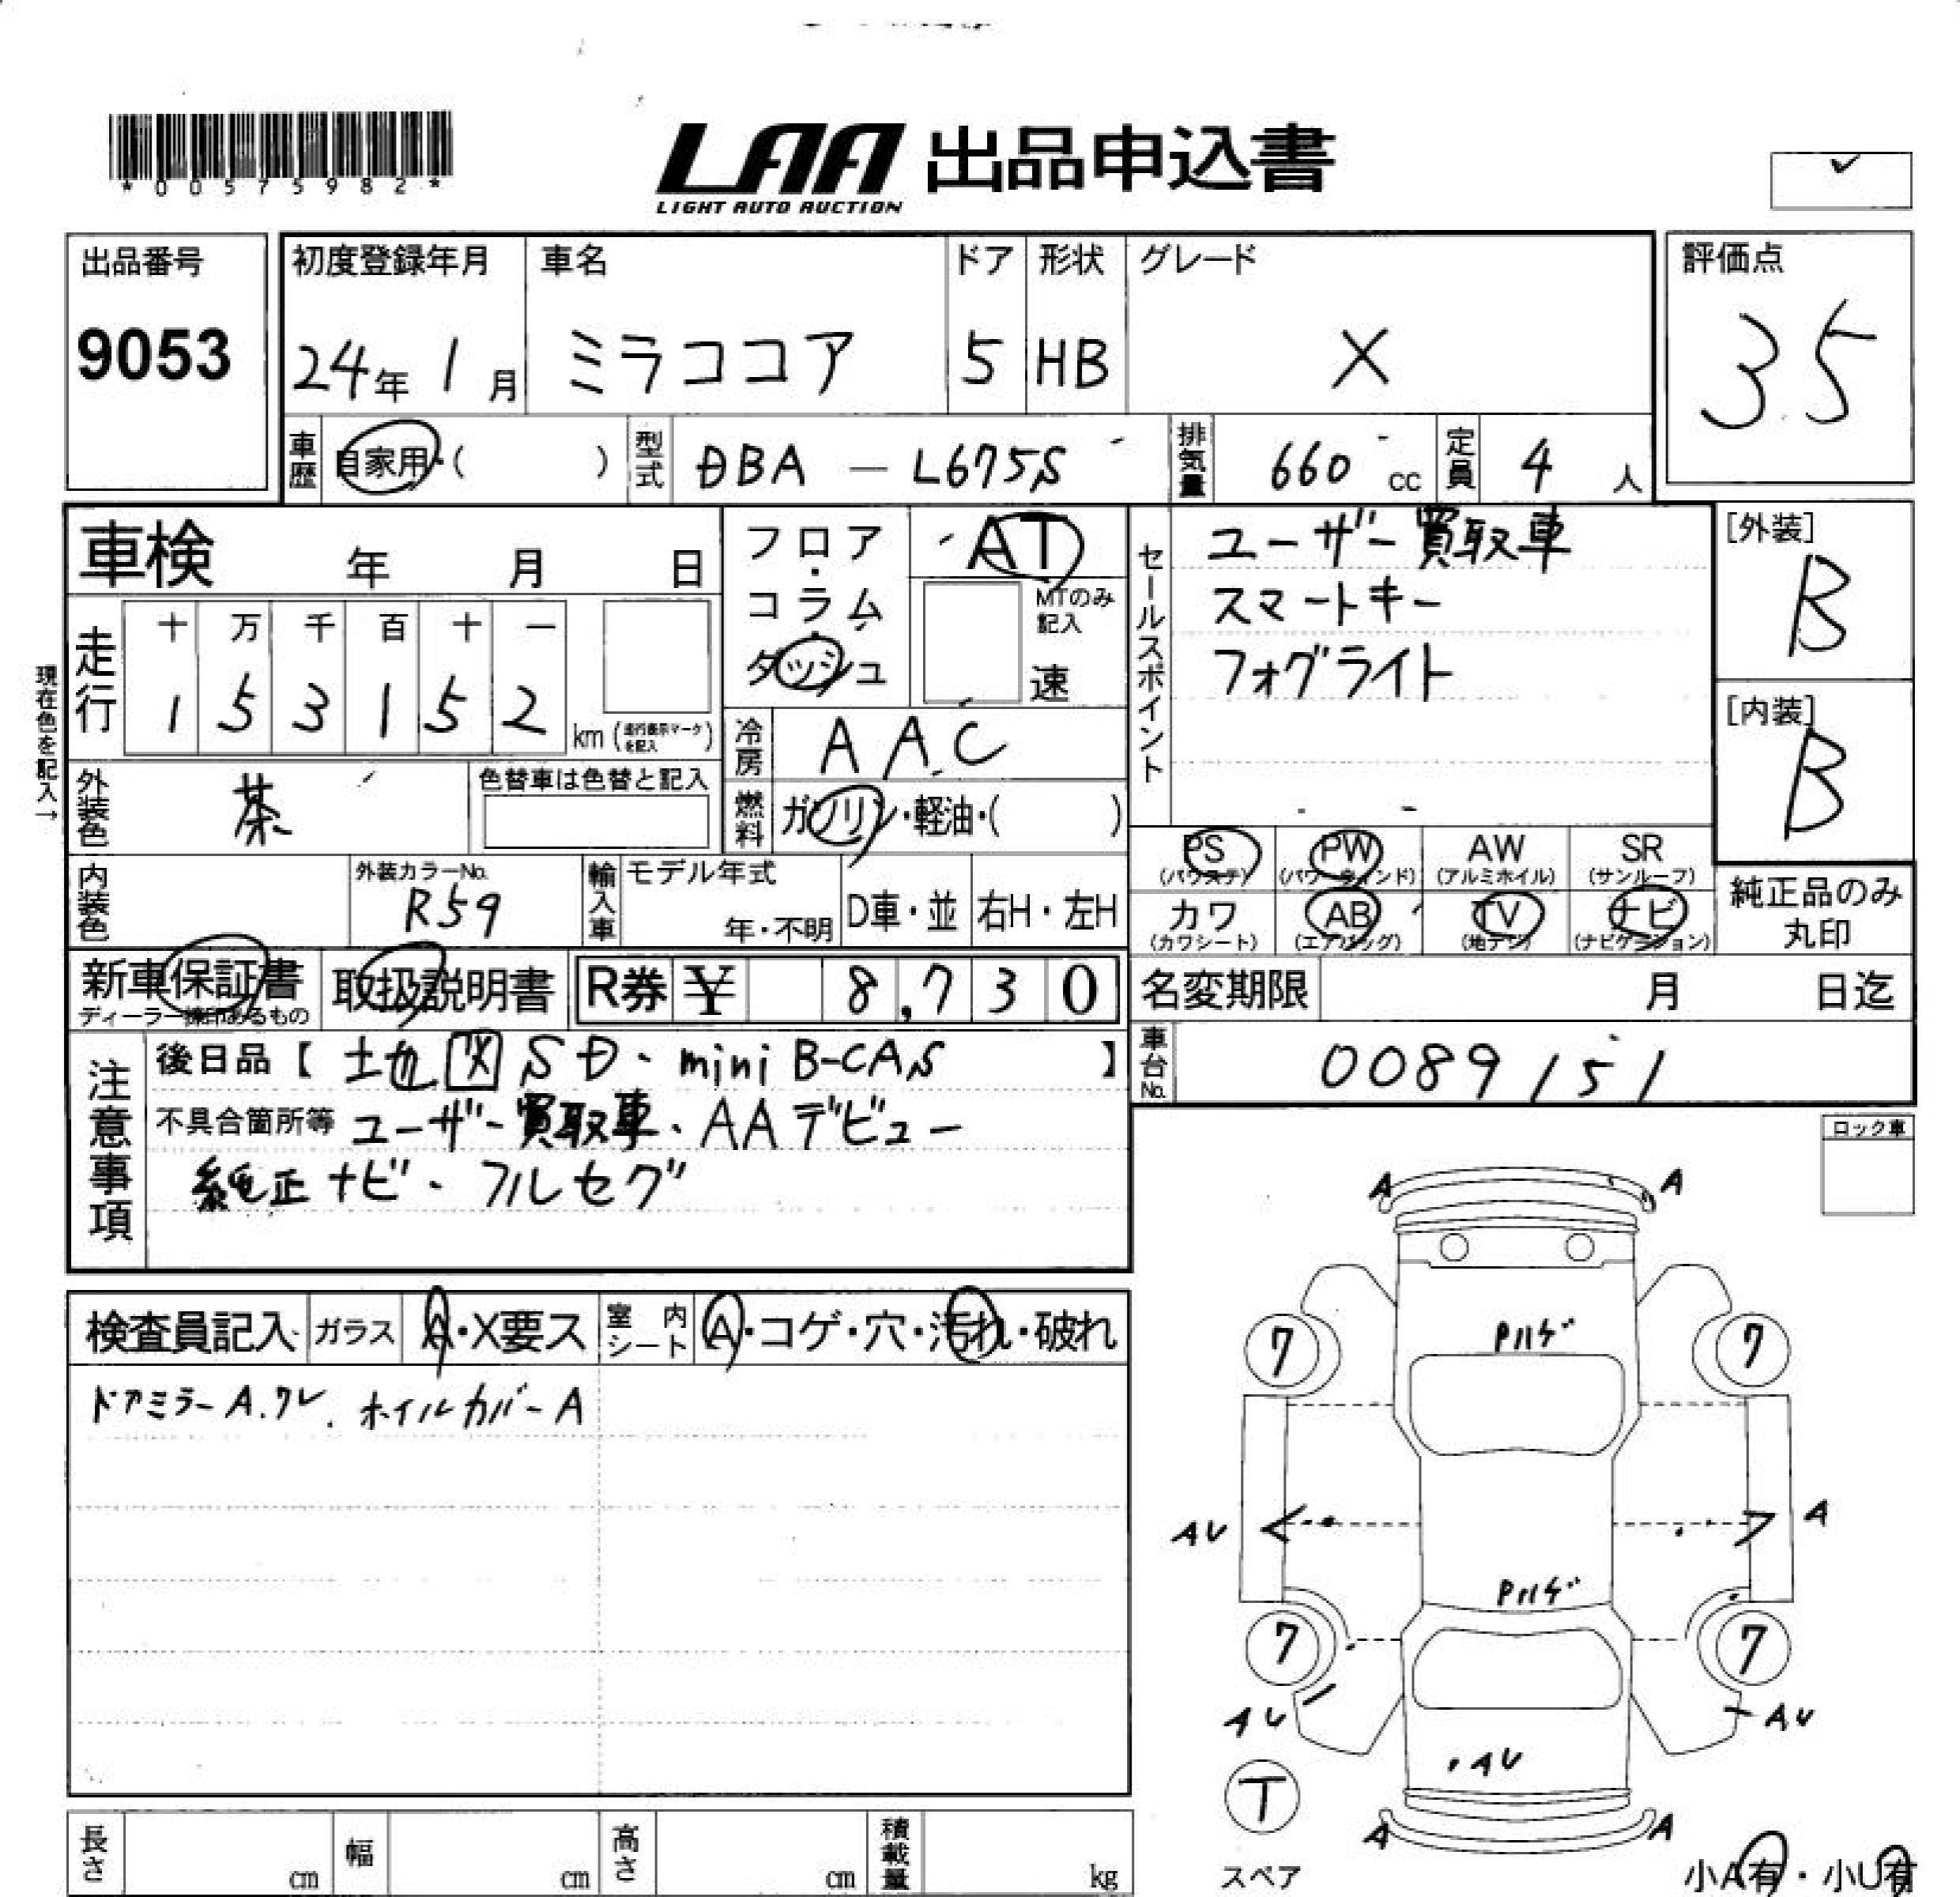 *00575982*
LAA 出品申込書
LIGHT AUTO AUCTION
出品番号
9053
初度登録年月
24年 1月
車名
ミラココア
ドア
5
形状
HB
グレード
X
評価点
3.5
車歴 自家用・( )
型式 DBA - L675S
排気量 660 cc
定員 4 人
車検 年 月 日
フロア・コラム・ダッシュ
AT
MTのみ記入
速
セールスポイント
ユーザー買取車
スマートキー
フォグライト
[外装]
B
[内装]
B
現在色を記入→
走行
十 万 千 百 十 一
1 5 3 1 5 2
km (走行表示マークを記入)
冷房 AAC
外装色 茶
色替車は色替と記入
燃料 ガソリン・軽油・( )
PS (パワステ)
PW (パワーウィンド)
AW (アルミホイル)
SR (サンルーフ)
カワ (カワシート)
AB (エアバッグ)
TV (地デジ)
ナビ (ナビゲーション)
純正品のみ
丸印
内装色
外装カラーNo.
R59
輸入車
モデル年式
年・不明
D車・並
右H・左H
新車保証書
取扱説明書
R券 ¥ 8,730
名変期限 月 日迄
車台No. 0089151
注意事項
後日品【 SD、mini B-CAS 】
不具合箇所等 ユーザー買取車、AAデビュー
純正ナビ、フルセグ
ロック車
検査員記入
ガラス A・X要ス
室内シート A・コゲ・穴・汚れ・破れ
ドアミラーA.ワレ、ホイルカバーA
A A
Pハゲ
7 7
AU A
Pハゲ
7 7
AU AU
AU
T
スペア
A A
小A有・小U有
長さ cm
幅 cm
高さ cm
積載量 kg